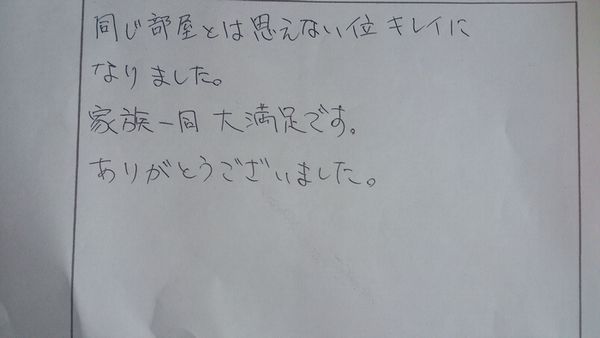 同じ部屋とは思えない位キレイに
なりました。
家族一同 大満足です。
ありがとうございました。